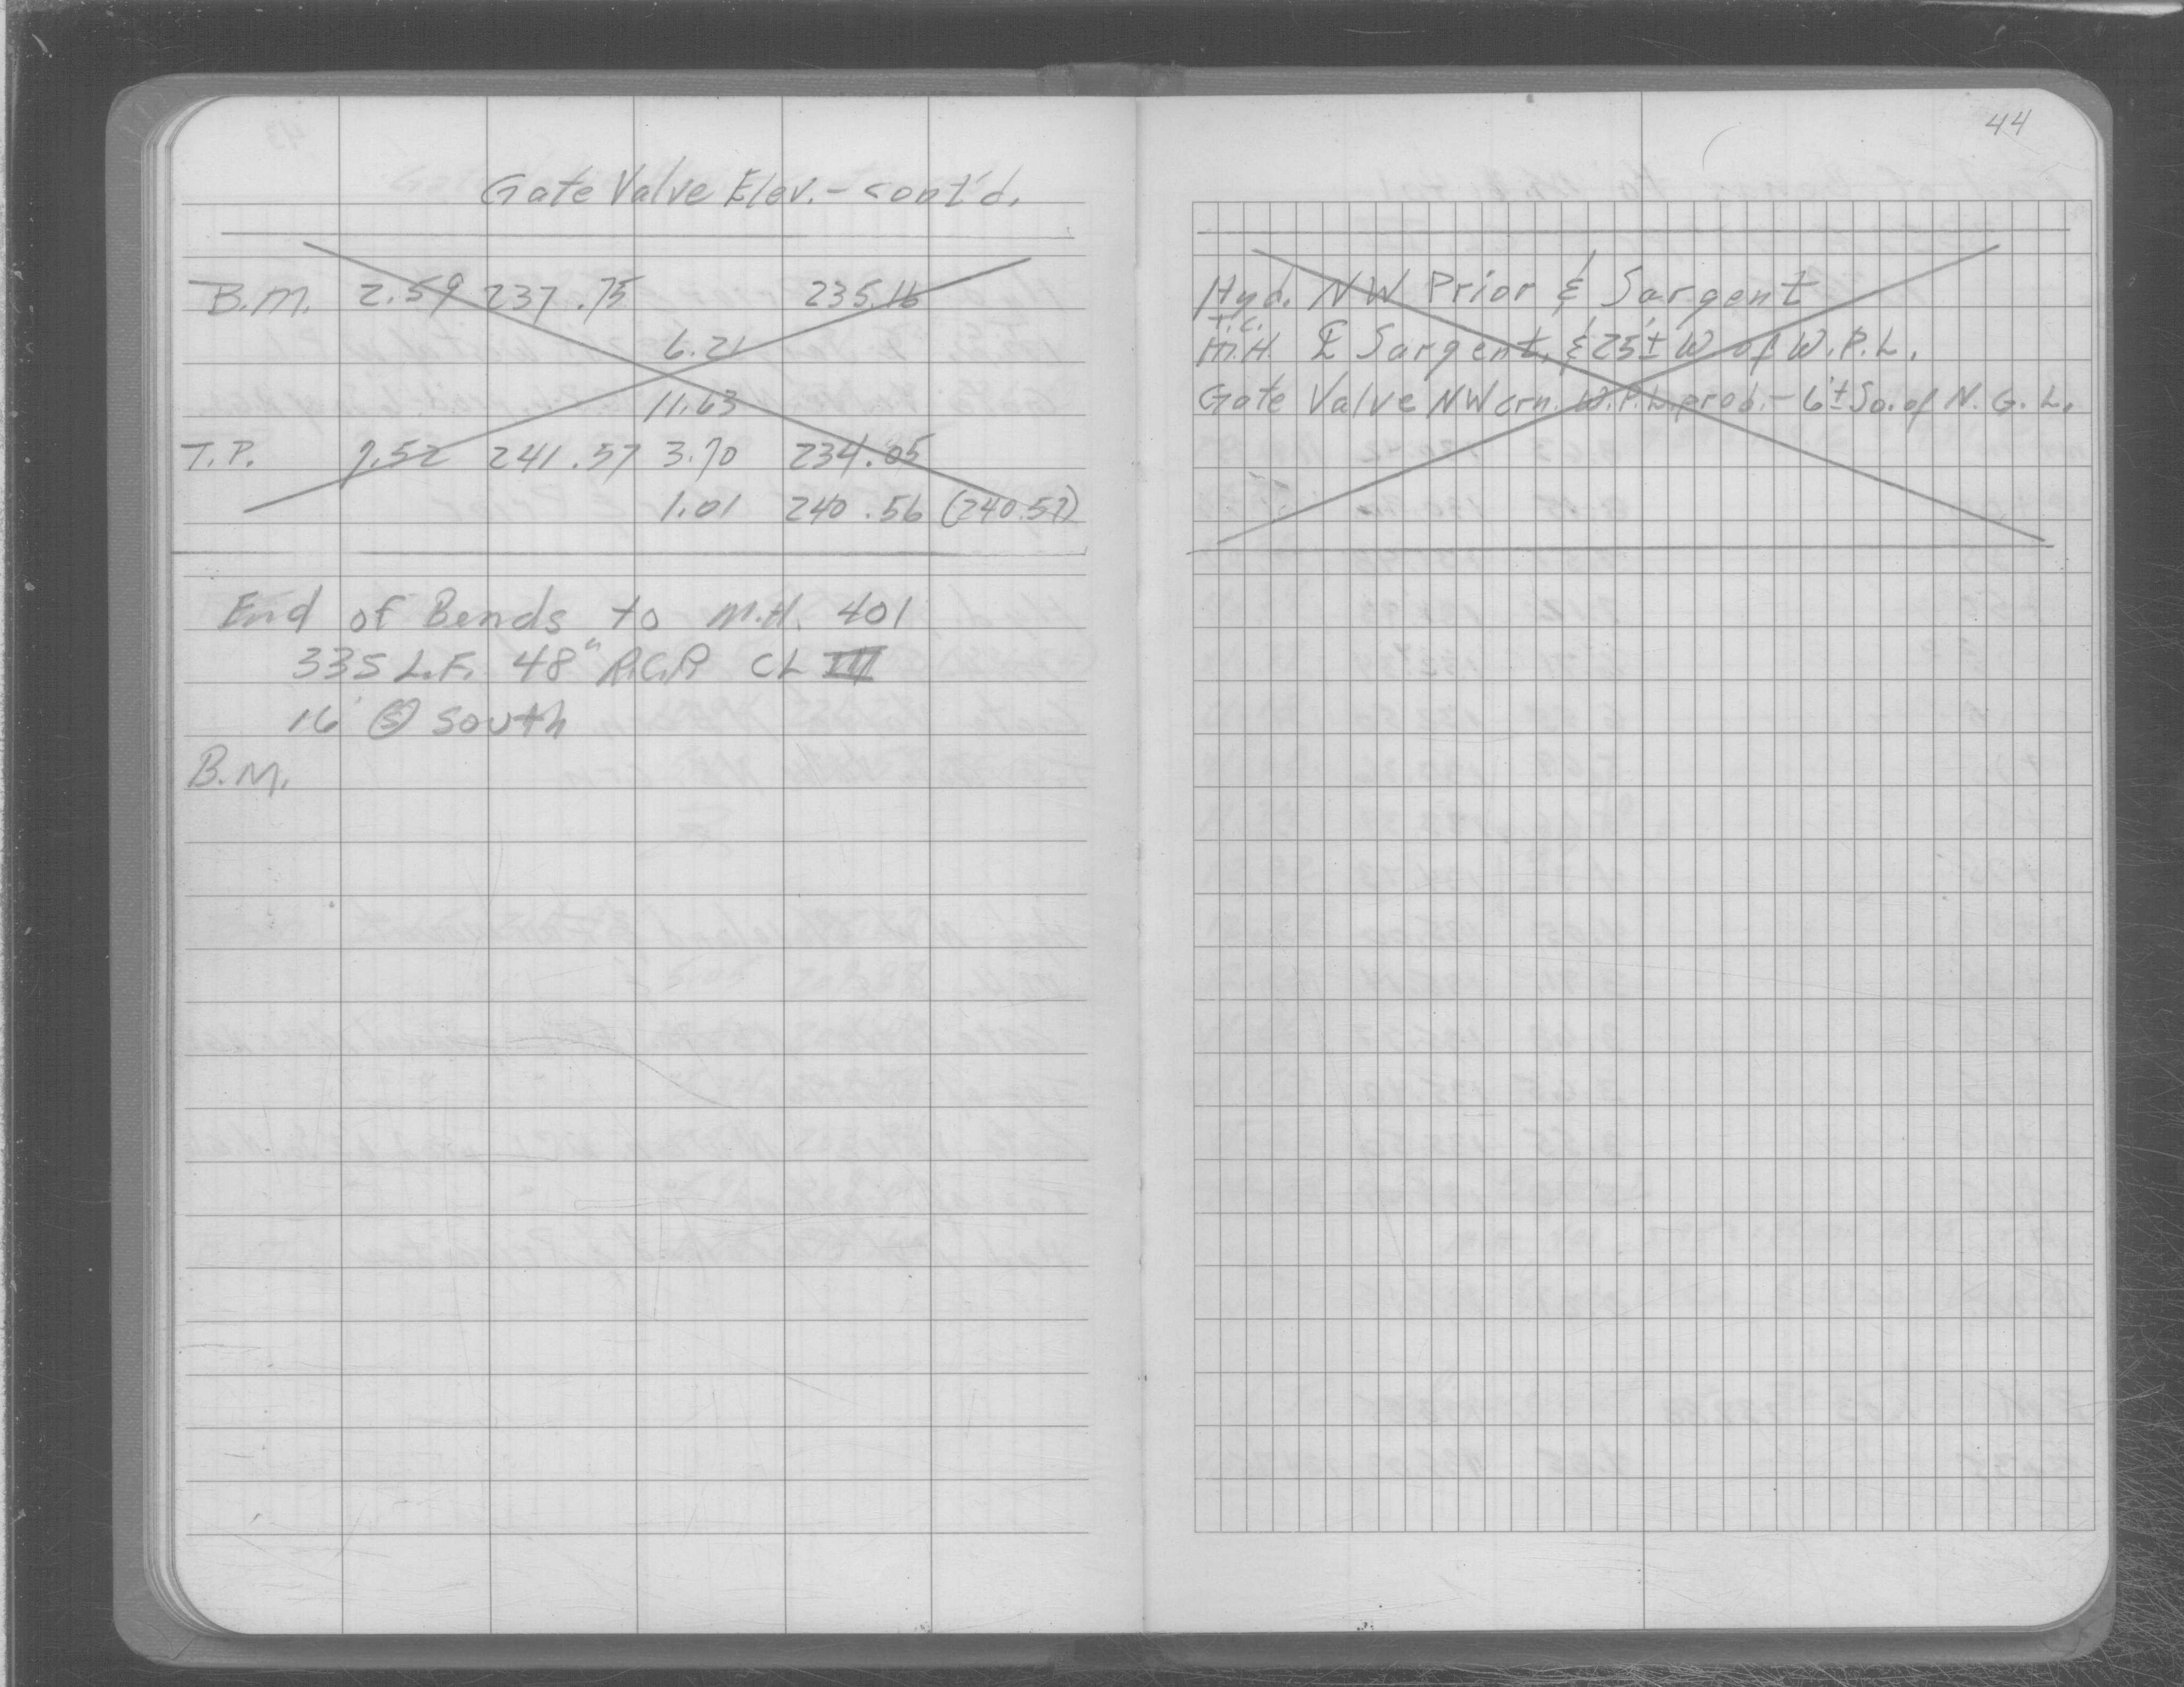 Gate Valve Elev. - cont'd.
B.M. 2.59 237.75 235.16
6.21
11.63
T.P. 7.52 241.57 3.70 234.05
1.01 240.56 (240.57)
End of Bends to M.H. 401
335 L.F. 48" R.C.P. CL III
16' South
B.M.
44
Hyd. NW Prior & Sargent
T.C.
M.H. ℄ Sargent, & 25'± W of W.P.L.
Gate Valve NW crn. W.P.L. prod. - 6'± So. of N.G.L.